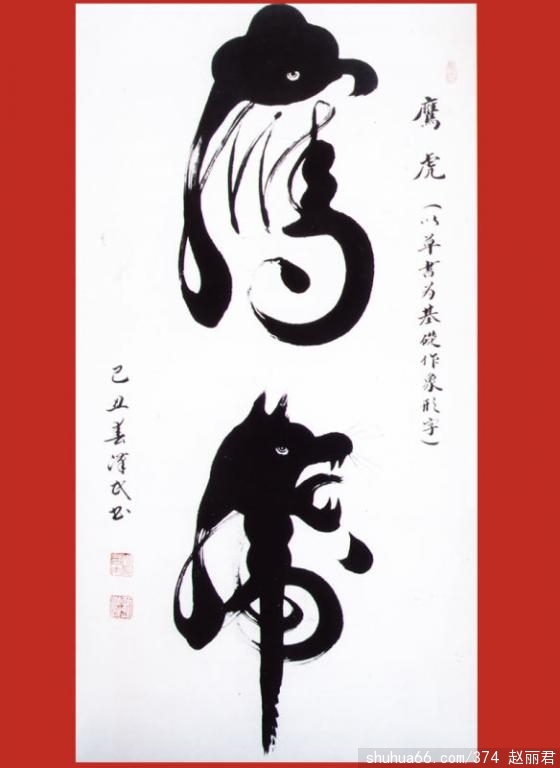 鹰虎
鹰虎(以草书为基础作象形字)
己丑春泽民书
shuhua66.com/374 赵丽君